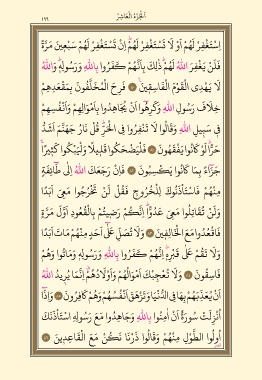 الجزء العاشر
١٩٩
اِسْتَغْفِرْ لَهُمْ اَوْ لَا تَسْتَغْفِرْ لَهُمْ اِنْ تَسْتَغْفِرْ لَهُمْ سَبْعِينَ مَرَّةً
فَلَنْ يَغْفِرَ اللهُ لَهُمْ ذٰلِكَ بِاَنَّهُمْ كَفَرُوا بِاللهِ وَرَسُولِهِ وَاللهُ
لَا يَهْدِى الْقَوْمَ الْفَاسِقِينَ ۝ فَرِحَ الْمُخَلَّفُونَ بِمَقْعَدِهِمْ
خِلَافَ رَسُولِ اللهِ وَكَرِهُوا اَنْ يُجَاهِدُوا بِاَمْوَالِهِمْ وَاَنْفُسِهِمْ
فِى سَبِيلِ اللهِ وَقَالُوا لَا تَنْفِرُوا فِى الْحَرِّ قُلْ نَارُ جَهَنَّمَ اَشَدُّ
حَرًّا لَوْ كَانُوا يَفْقَهُونَ ۝ فَلْيَضْحَكُوا قَلِيلًا وَلْيَبْكُوا كَثِيرًا
جَزَاءً بِمَا كَانُوا يَكْسِبُونَ ۝ فَاِنْ رَجَعَكَ اللهُ اِلٰى طَائِفَةٍ
مِنْهُمْ فَاسْتَاْذَنُوكَ لِلْخُرُوجِ فَقُلْ لَنْ تَخْرُجُوا مَعِىَ اَبَدًا
وَلَنْ تُقَاتِلُوا مَعِىَ عَدُوًّا اِنَّكُمْ رَضِيتُمْ بِالْقُعُودِ اَوَّلَ مَرَّةٍ
فَاقْعُدُوا مَعَ الْخَالِفِينَ ۝ وَلَا تُصَلِّ عَلٰى اَحَدٍ مِنْهُمْ مَاتَ اَبَدًا
وَلَا تَقُمْ عَلٰى قَبْرِهِ اِنَّهُمْ كَفَرُوا بِاللهِ وَرَسُولِهِ وَمَاتُوا وَهُمْ
فَاسِقُونَ ۝ وَلَا تُعْجِبْكَ اَمْوَالُهُمْ وَاَوْلَادُهُمْ اِنَّمَا يُرِيدُ اللهُ
اَنْ يُعَذِّبَهُمْ بِهَا فِى الدُّنْيَا وَتَزْهَقَ اَنْفُسُهُمْ وَهُمْ كَافِرُونَ ۝ وَاِذَا
اُنْزِلَتْ سُورَةٌ اَنْ اٰمِنُوا بِاللهِ وَجَاهِدُوا مَعَ رَسُولِهِ اسْتَاْذَنَكَ
اُولُوا الطَّوْلِ مِنْهُمْ وَقَالُوا ذَرْنَا نَكُنْ مَعَ الْقَاعِدِينَ ۝